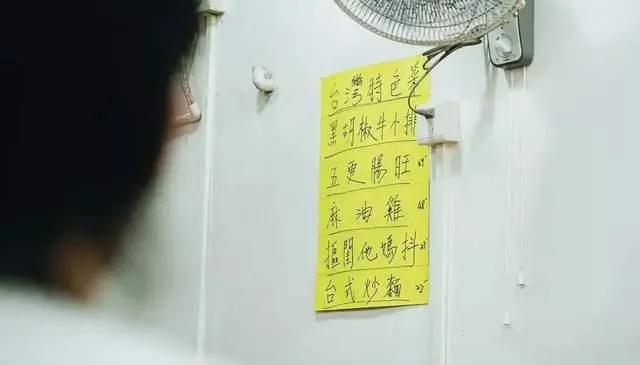 台灣特色菜
黑胡椒牛小排
五更腸旺
麻油雞 48
摳閨他媽抖
台式炒麵